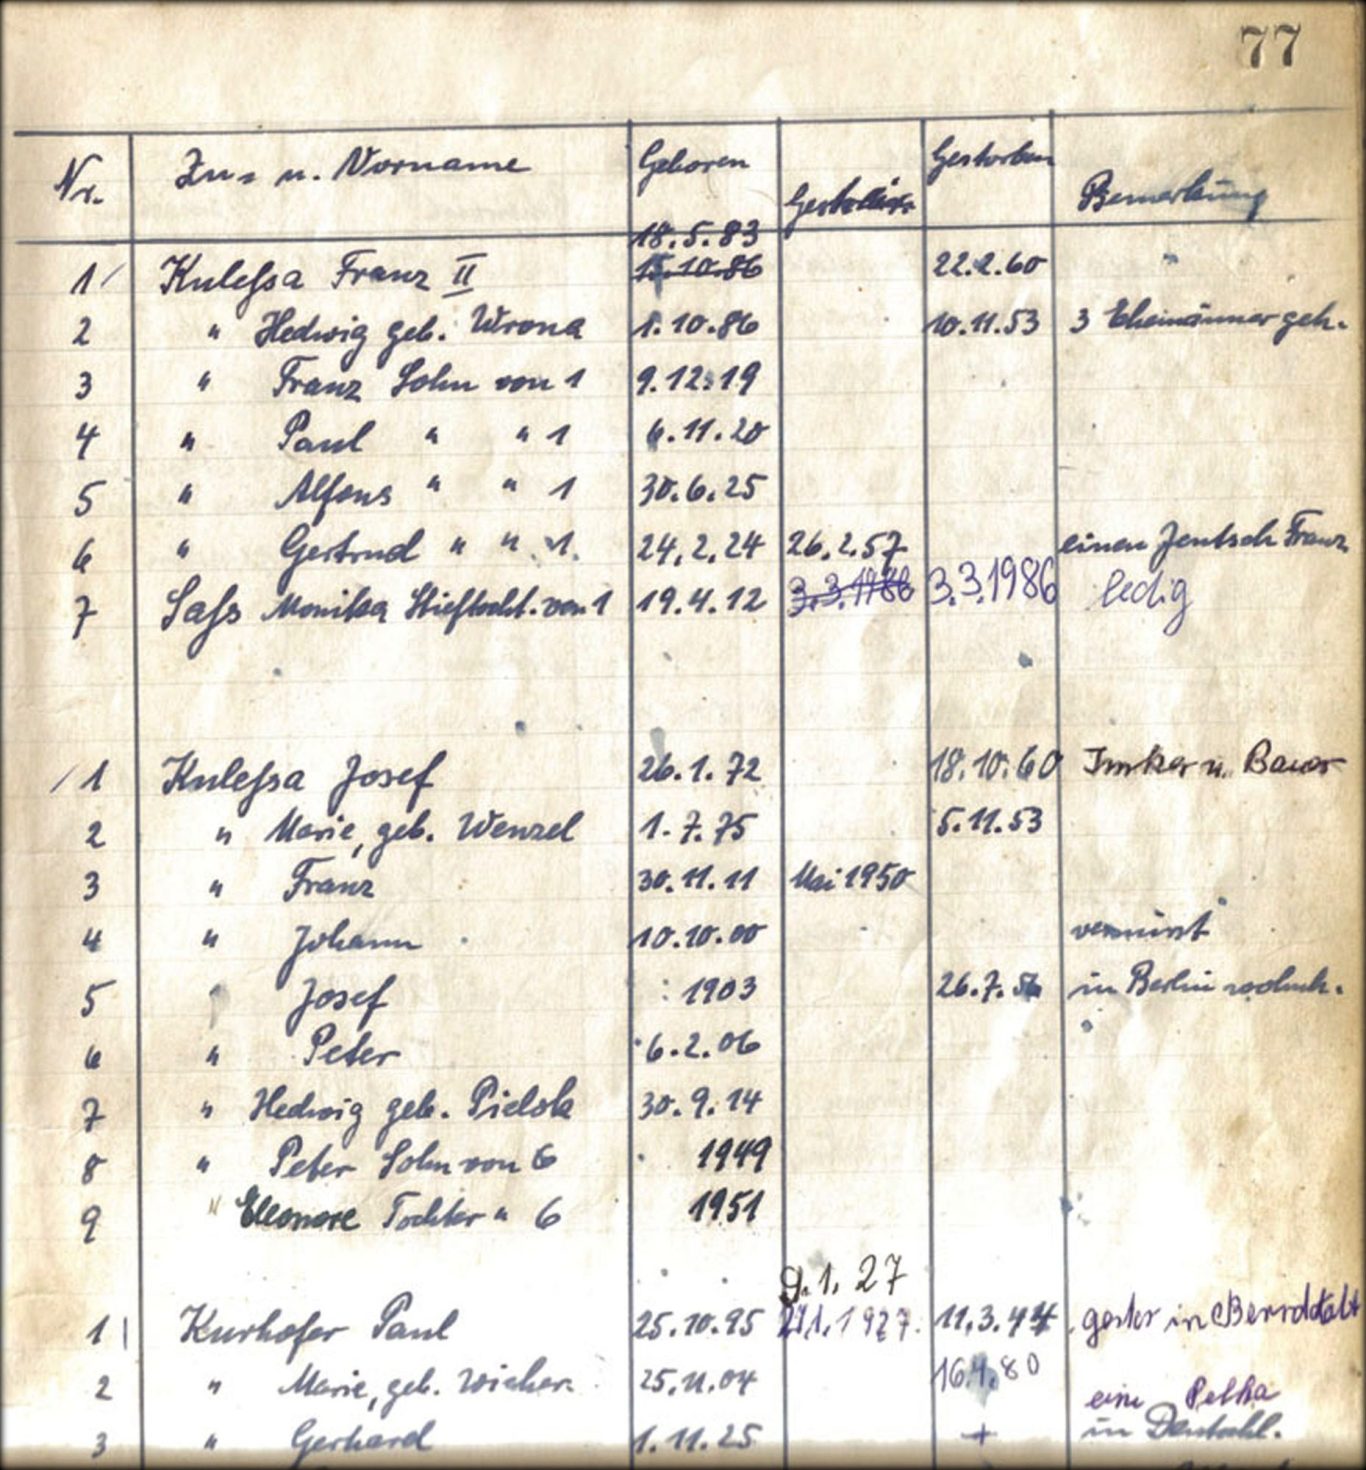 77
Nr. Zu- u. Vorname Geboren Gestorben Bemerkung
18.5.83
1 Kulessa Franz II 15.10.86 22.2.60 "
2 " Hedwig geb. Wrona 1.10.86 10.11.53 3 Ehemänner geh.
3 " Franz Sohn von 1 9.12.19
4 " Paul " " 1 6.11.20
5 " Alfons " " 1 30.6.25
6 " Gertrud " " 1. 24.2.24 26.2.57 einen Jentsch Franz
7 Sass Monika Stieftocht. von 1 19.4.12 3.3.1986 3.3.1986 ledig
1 Kulessa Josef 26.1.72 18.10.60 Imker u. Bauer
2 " Marie, geb. Wenzel 1.7.75 5.11.53
3 " Franz 30.11.11 Mai 1950
4 " Johann 10.10.00 vermisst
5 " Josef 1903 26.7.56 in Berlin wohnh.
6 " Peter 6.2.06
7 " Hedwig geb. Pielok 30.9.14
8 " Peter Sohn von 6 1949
9 " Eleonore Tochter " 6 1951
9.1.27
1 Kurhofer Paul 25.10.95 1927. 11.3.44 in
2 " Marie, geb. Wicher 25.11.04 16.4.80 eine Pelka
3 " Gerhard 1.11.25 + in Deutschl.